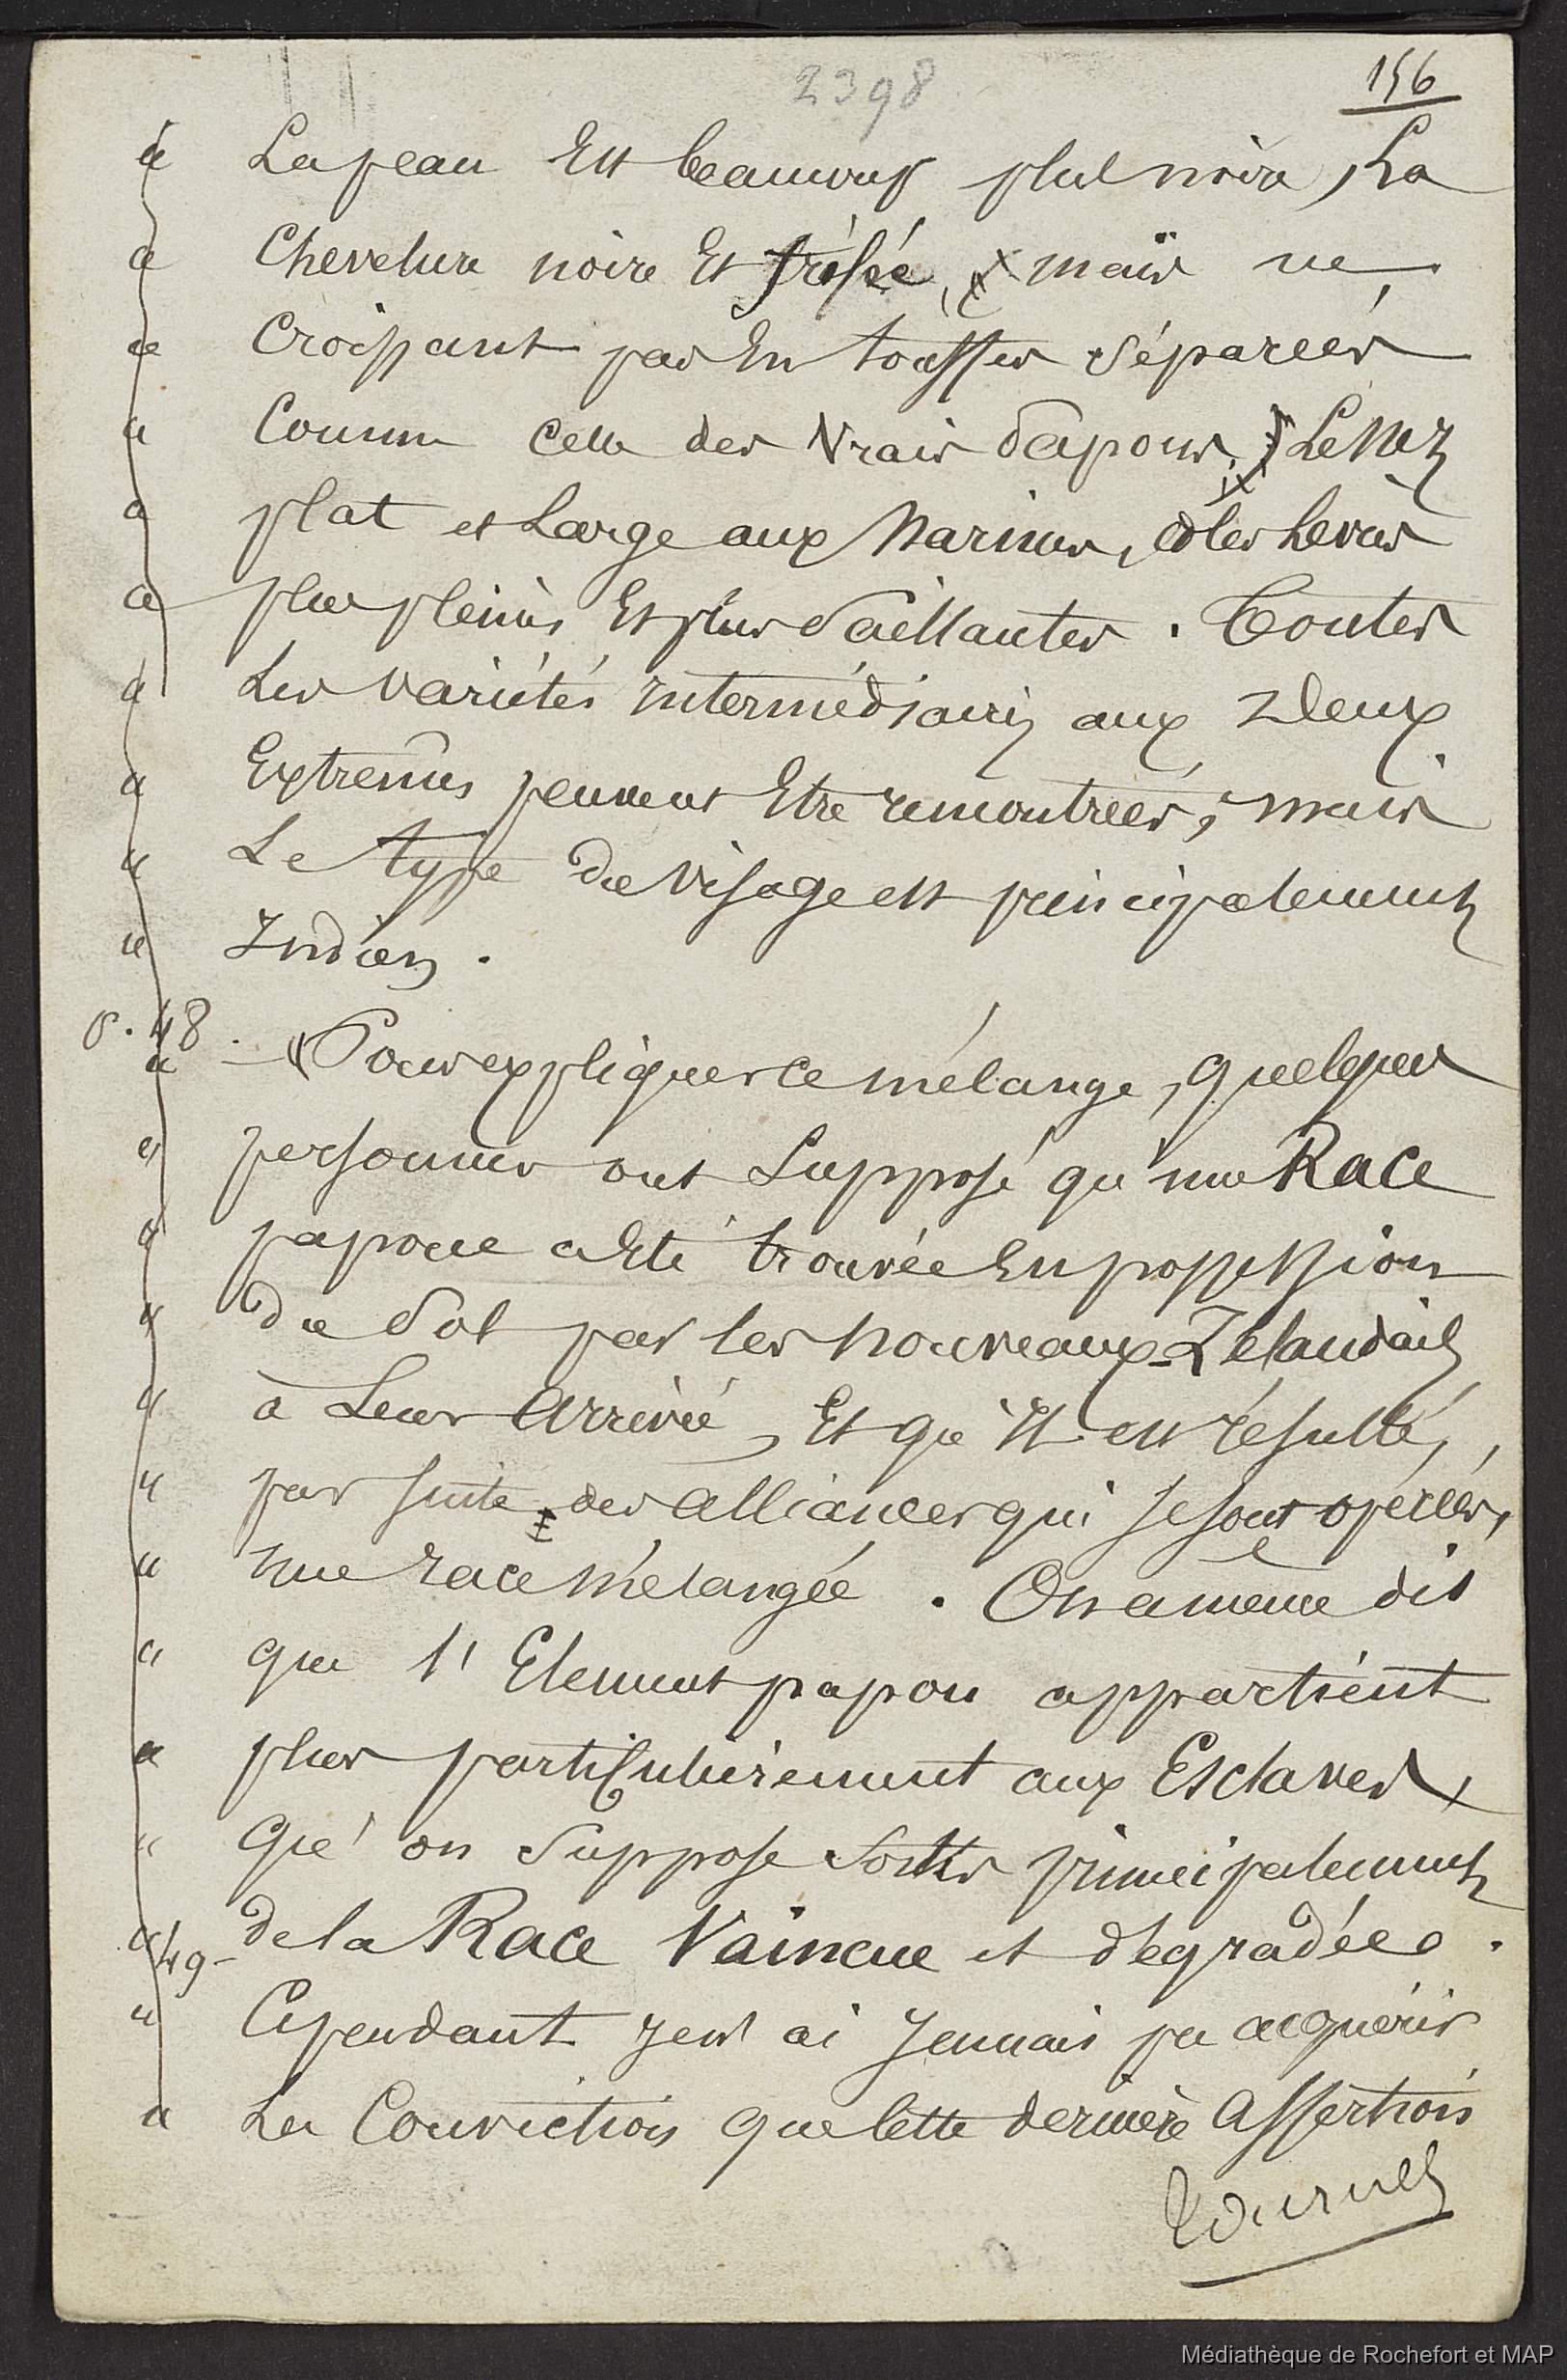 2398
156
" La peau Est beaucoup plus noire, La
" Chevelure noire Et frisée, mais ne
" Croissant pas En touffes séparées
" Comme celle des Vrais Papous. Le Nez
" plat et Large aux Narines, et les Levres
" plus pleines Et plus Saillantes. Toutes
" Les variétés intermédiaires aux deux
" Extremes peuvent Etre rencontrées, mais
" Le type du visage est principalement
" Indien.
p. 48.
" — « Pour expliquer ce mélange, quelques
" personnes ont Supposé qu'une Race
" papoue a Eté trouvée En possession
" du Sol par les Nouveaux-Zélandais
" à Leur Arrivée, Et qu'Il est résulté,
" par suite des Alliances qui se sont opérées,
" une race mélangée. On a même dit
" que l'Element papou appartient
" plus particulièrement aux Esclaves,
" qu'on Suppose Sortis principalement
" de la Race Vaincue et dégradée.
49 –
" Cependant Je n'ai Jamais pu acquérir
" La Conviction que Cette dernière Assertion
Tournez
Médiathèque de Rochefort et MAP